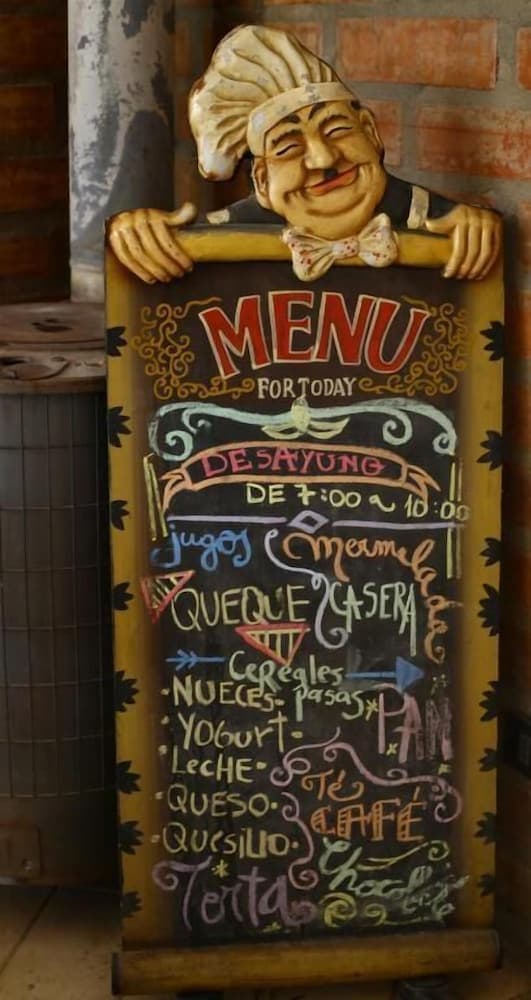 MENU
FOR TODAY
DESAYUNO
DE 7:00 a 10:00
jugos
Mermelada
QUEQUE CASERA
Cereales
• NUECES - Pasas
PAN
• YOGurt -
• LeCHE •
Té
• QUESO •
CAFÉ
• QUESILLO •
Chocolate
Torta